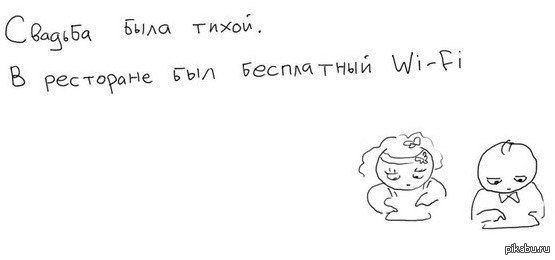 Свадьба была тихой.
В ресторане был бесплатный Wi-Fi
pikabu.ru